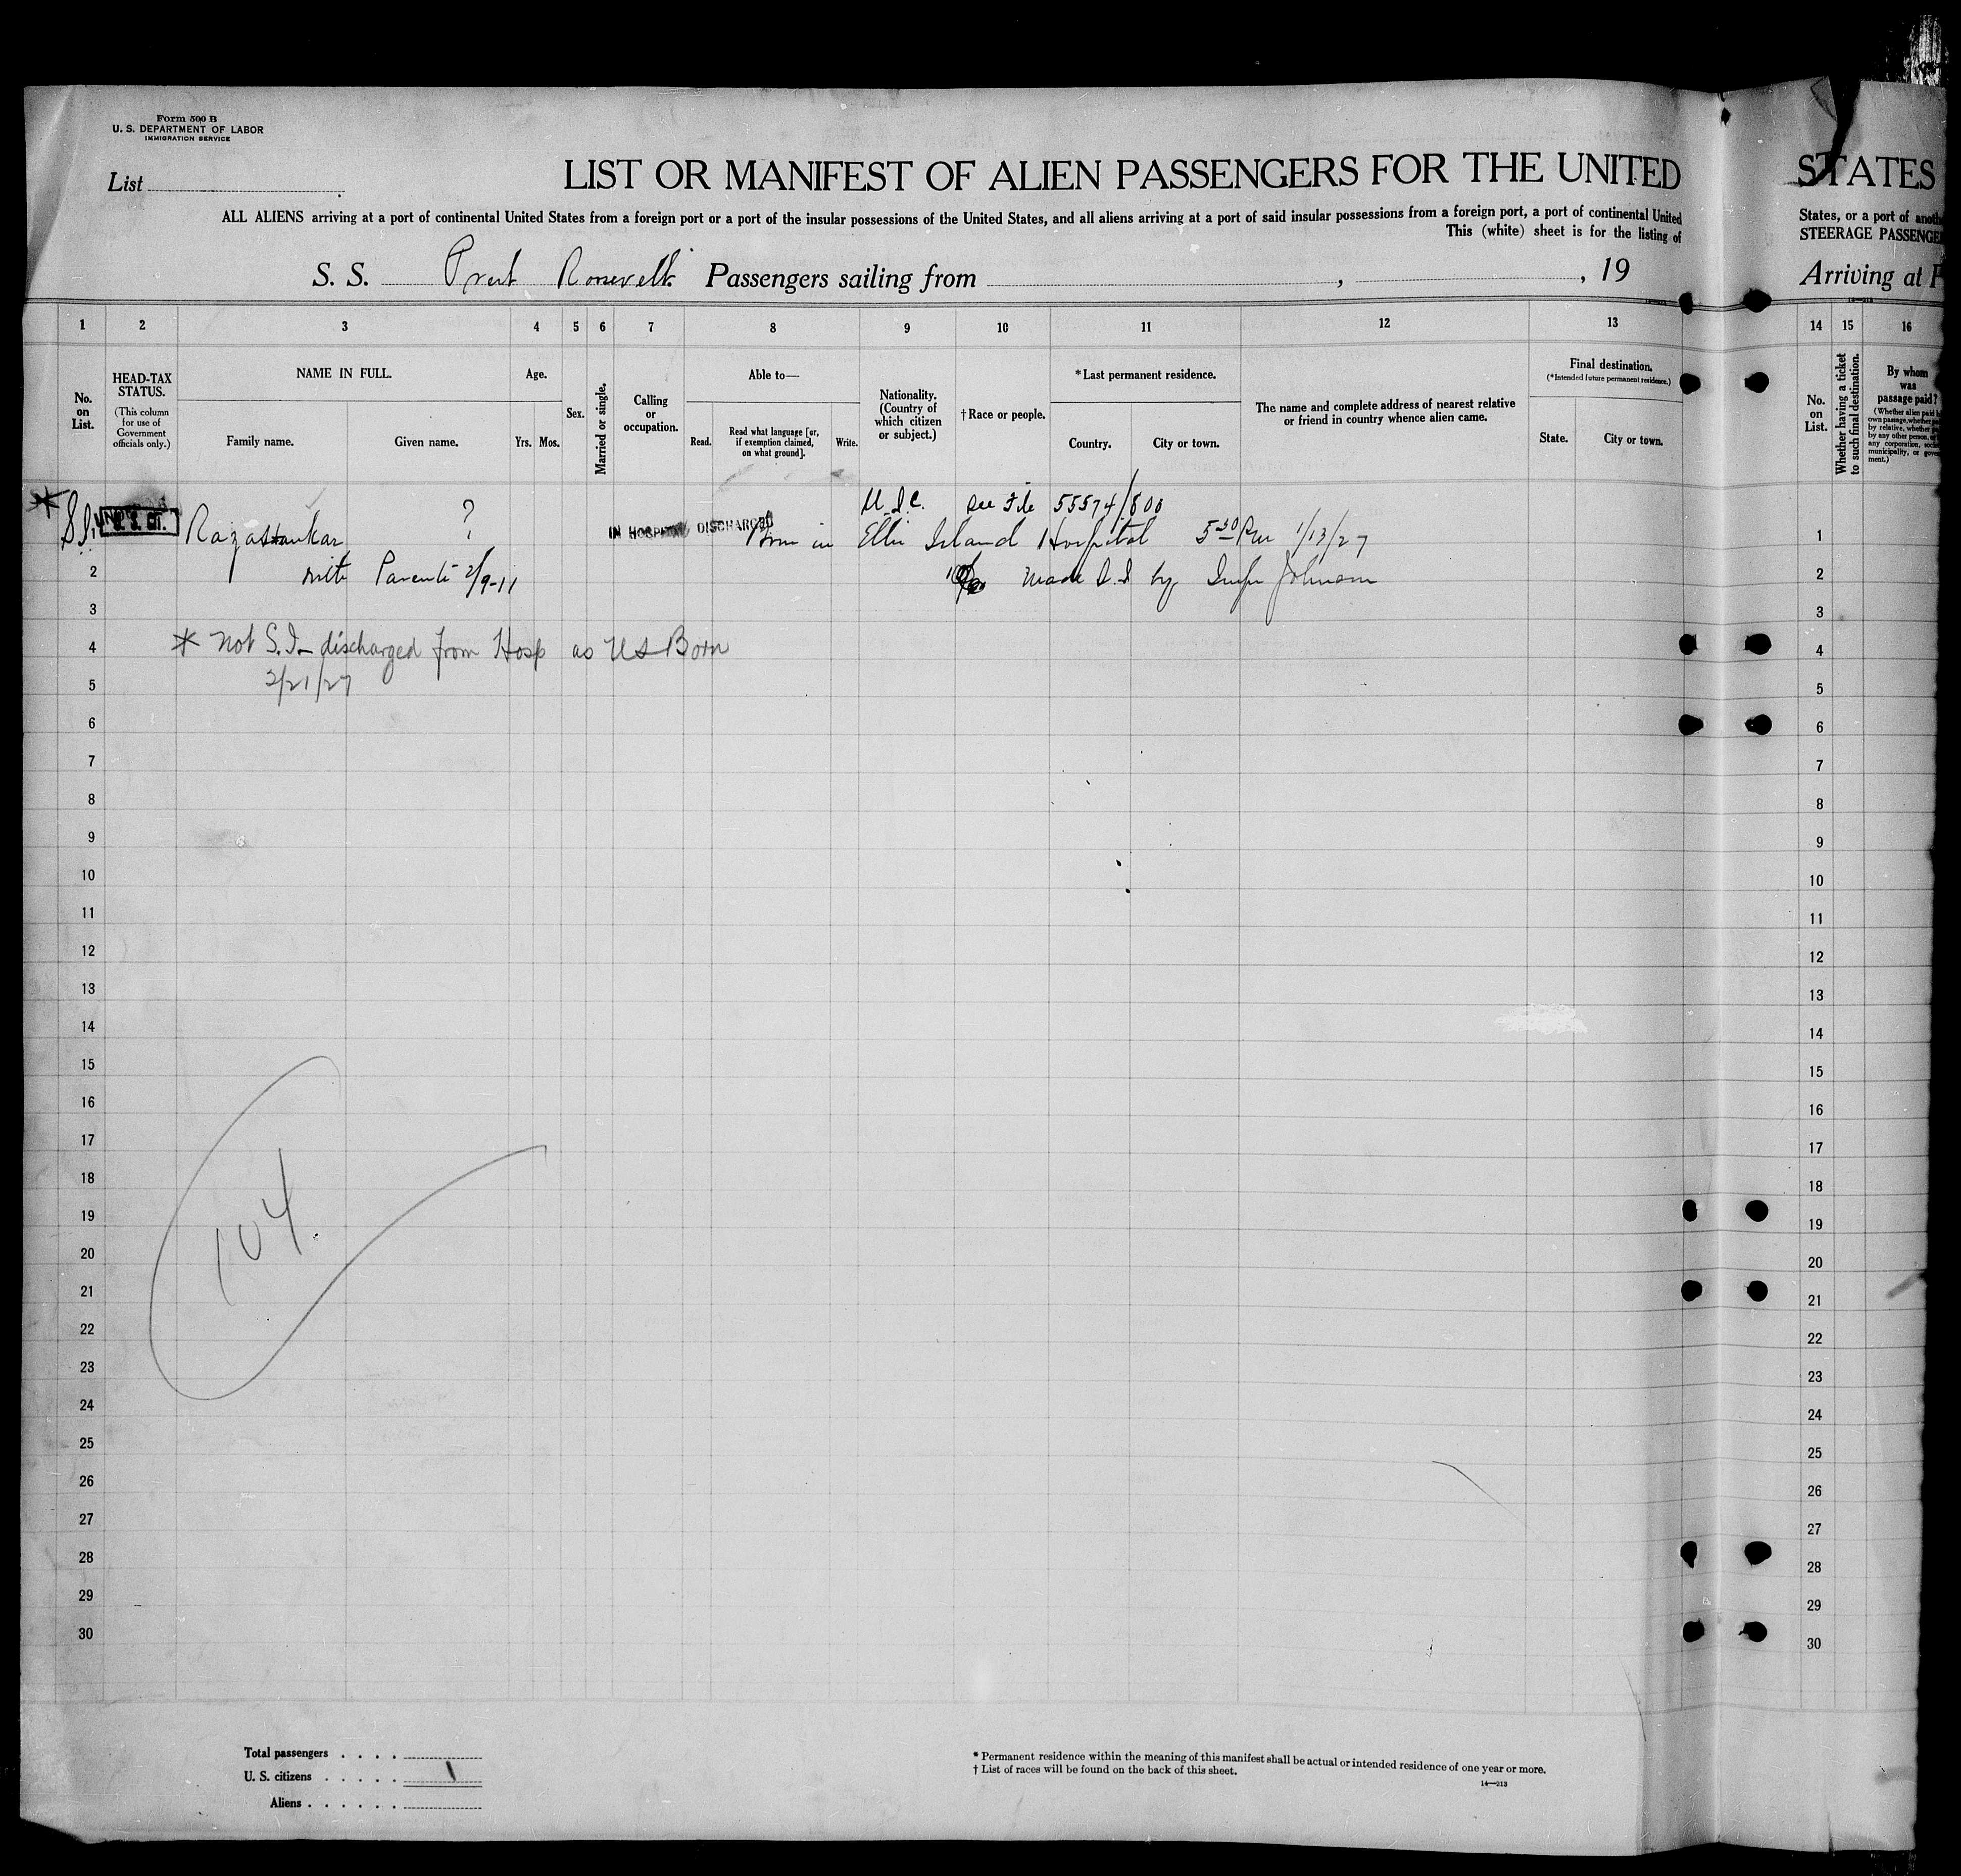 Form 500 B
U. S. DEPARTMENT OF LABOR
IMMIGRATION SERVICE
List
LIST OR MANIFEST OF ALIEN PASSENGERS FOR THE UNITED
STATES
ALL ALIENS arriving at a port of continental United States from a foreign port or a port of the insular possessions of the United States, and all aliens arriving at a port of said insular possessions from a foreign port, a port of continental United
States, or a port of anoth
This (white) sheet is for the listing of
STEERAGE PASSENGE
S. S. Prest Roosevelt Passengers sailing from , , 19
Arriving at P
1 2 3 4 5 6 7 8 9 10 11 12 13
14 15 16
No. on List.
HEAD-TAX STATUS.
(This column for use of Government officials only.)
NAME IN FULL.
Family name. Given name.
Age.
Yrs. Mos.
Sex.
Married or single.
Calling or occupation.
Able to—
Read.
Read what language [or, if exemption claimed, on what ground].
Write.
Nationality. (Country of which citizen or subject.)
†Race or people.
*Last permanent residence.
Country. City or town.
The name and complete address of nearest relative or friend in country whence alien came.
Final destination.
(*Intended future permanent residence.)
State. City or town.
No. on List.
Whether having a ticket to such final destination.
By whom was passage paid?
U.S.C. See File 55574/800
* S.I. Razastankar ? IN HOSPITAL DISCHARGED Born in Ellis Island Hospital 5 30 PM 1/13/27
1
2 with Parents 2/9-11 Made S.I by Insp Johnson
2
3
3
4 * Not S.I- discharged from Hosp as US Born
4
5 2/21/27
5
6
6
7
7
8
8
9
9
10
10
11
11
12
12
13
13
14
14
15
15
16
16
17
17
18
18
19
19
104.
20
20
21
21
22
22
23
23
24
24
25
25
26
26
27
27
28
28
29
29
30
30
Total passengers . . . .
U. S. citizens . . . . . 1
Aliens . . . . . .
* Permanent residence within the meaning of this manifest shall be actual or intended residence of one year or more.
† List of races will be found on the back of this sheet.
14—213